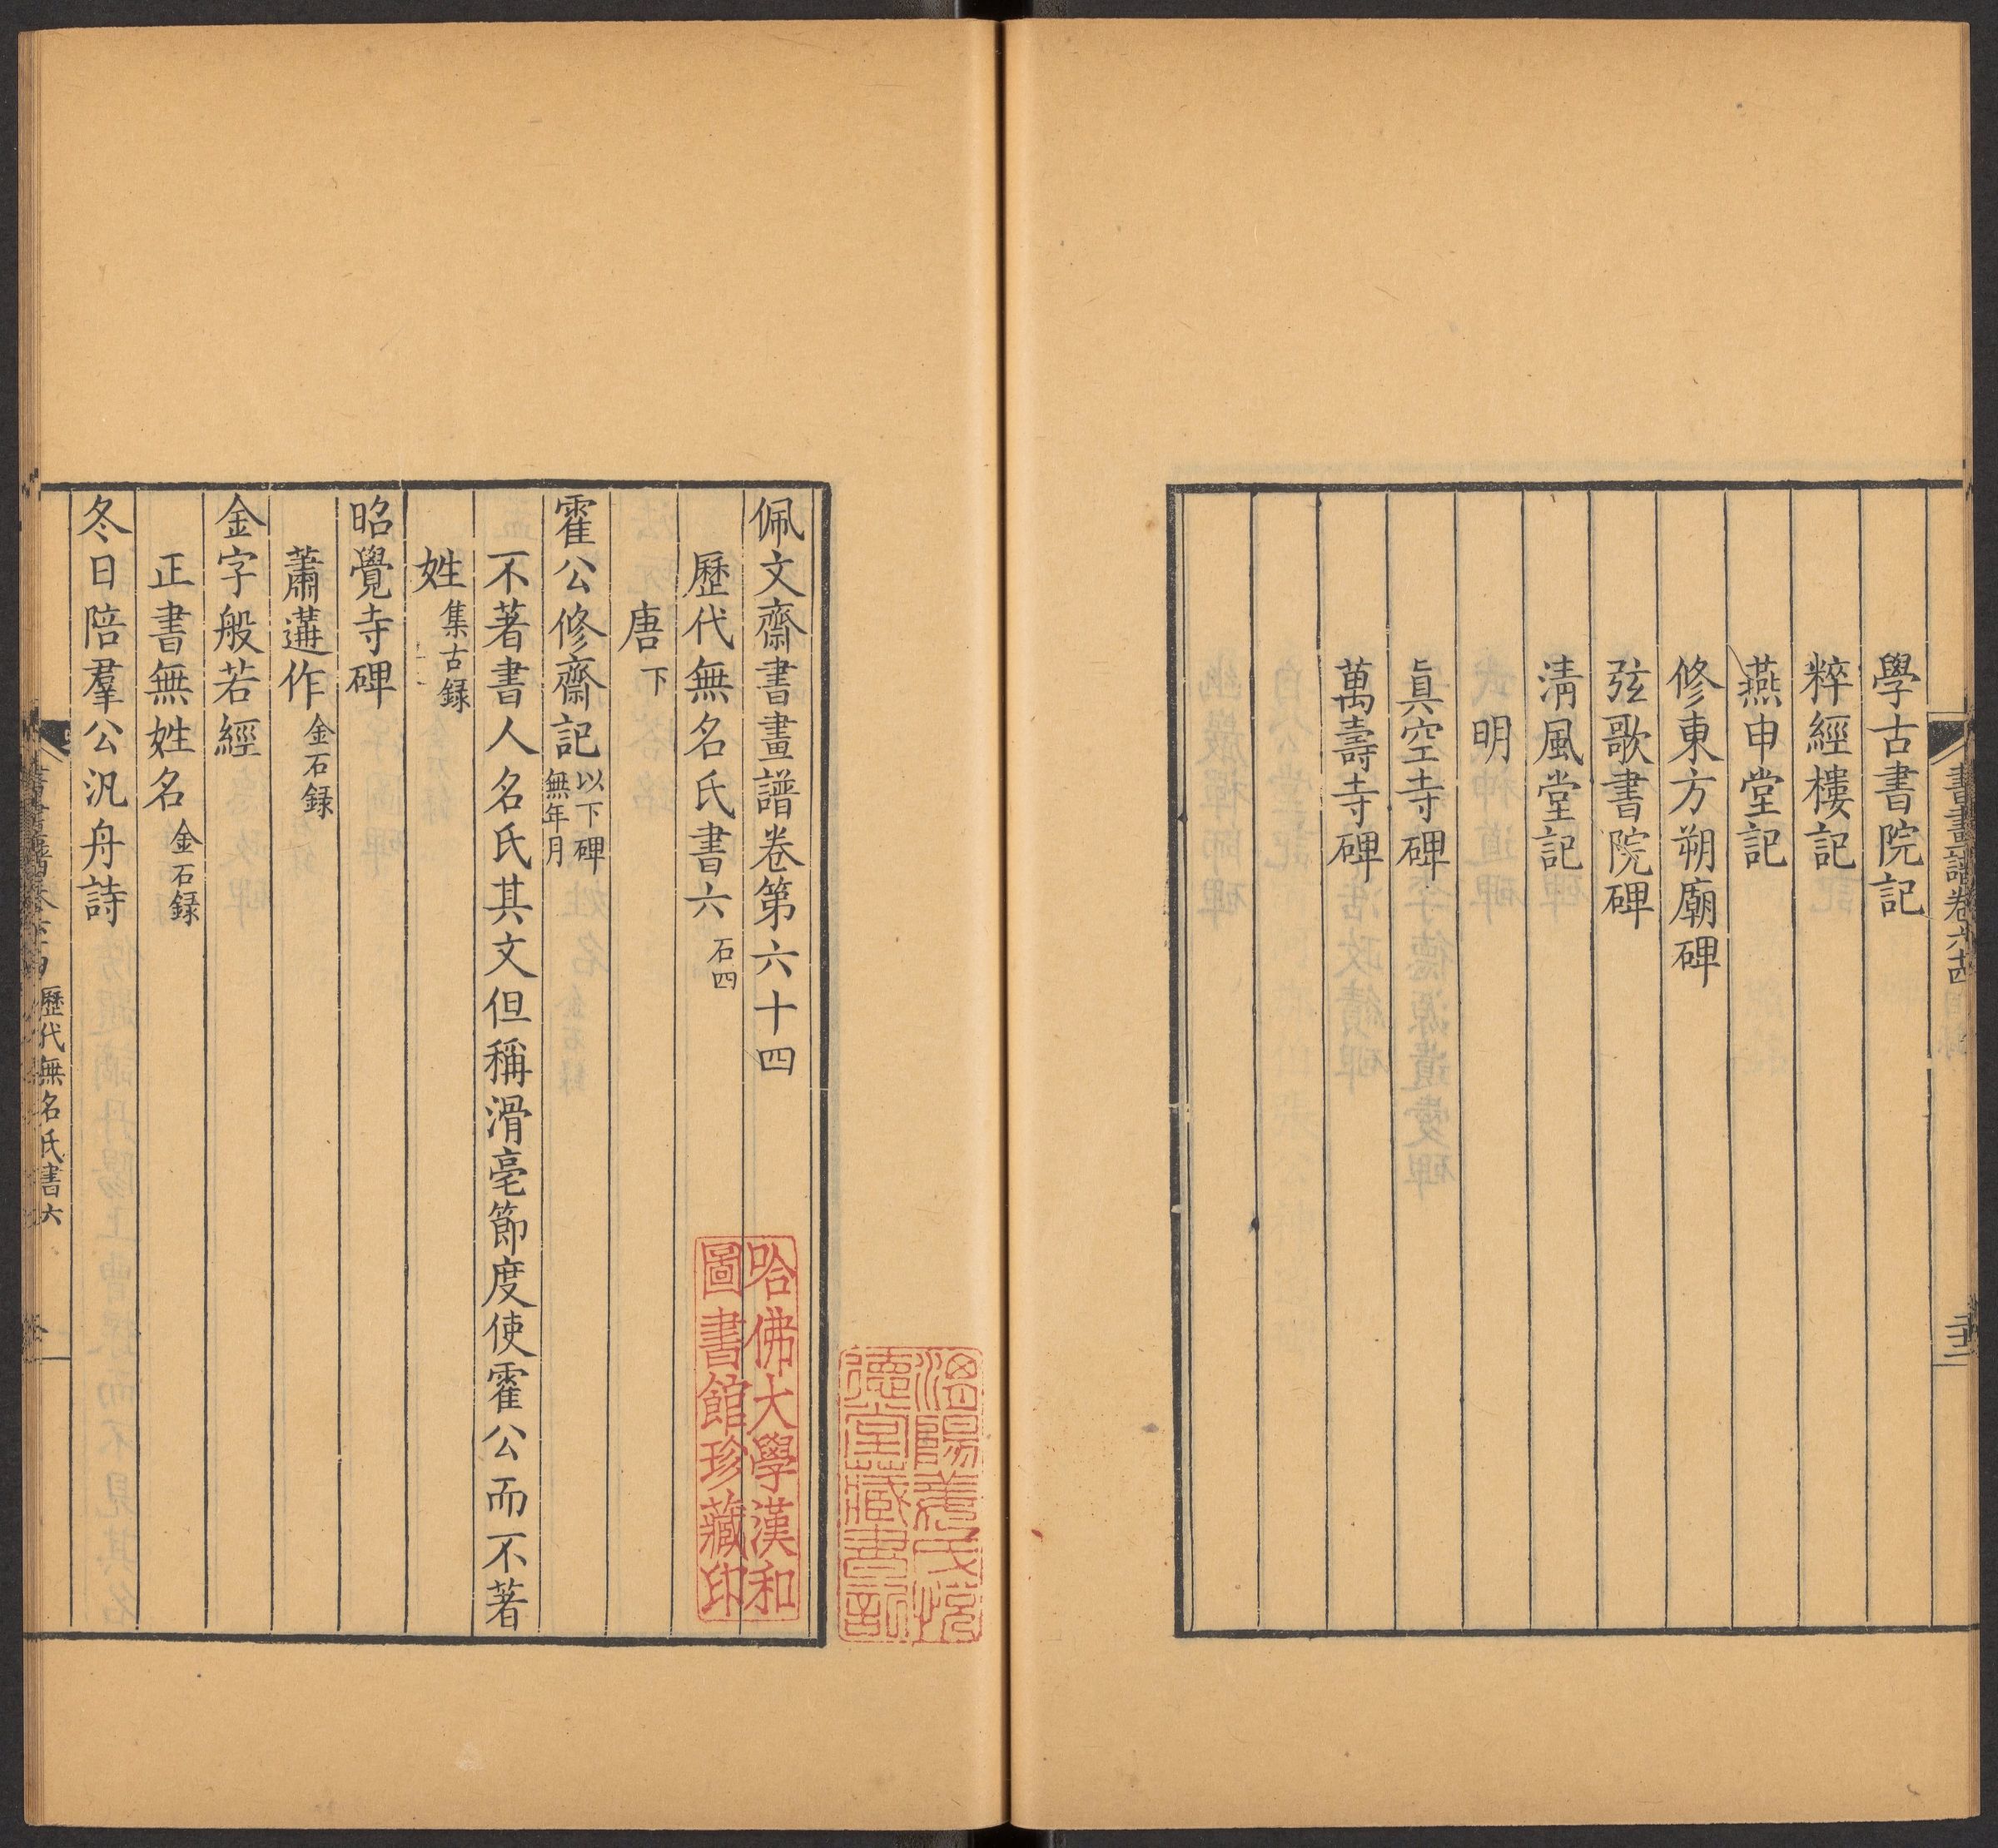 書畫譜卷六十四
二十二
學古書院記
粹經樓記
燕申堂記
修東方朔廟碑
弦歌書院碑
清風堂記
明
真空寺碑
萬壽寺碑
佩文齋書畫譜卷第六十四
歷代無名氏書六 石四
唐下
霍公修齋記 以下碑無年月
不著書人名氏其文但稱滑亳節度使霍公而不著
姓 集古録
昭覺寺碑
蕭遘作 金石録
金字般若經
正書無姓名 金石録
冬日陪羣公汎舟詩
歷代無名氏書六
哈佛大學漢和
圖書館珍藏印
德堂藏書記